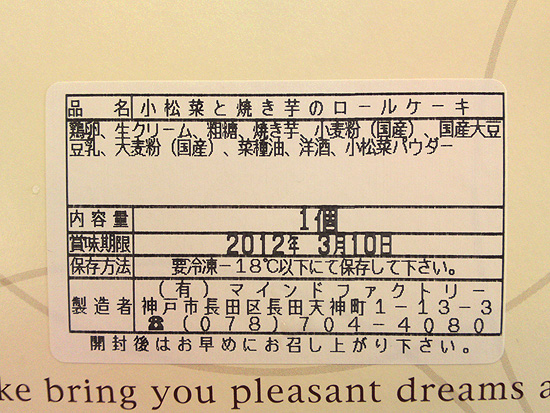 品名 小松菜と焼き芋のロールケーキ
鶏卵、生クリーム、粗糖、焼き芋、小麦粉（国産）、国産大豆
豆乳、大麦粉（国産）、菜種油、洋酒、小松菜パウダー
内容量 1個
賞味期限 2012年 3月10日
保存方法 要冷凍－18℃以下にて保存して下さい。
製造者 （有）マインドファクトリー
神戸市長田区長田天神町1－13－3
☎(078)704-4080
開封後はお早めにお召し上がり下さい。
ke bring you pleasant dreams a